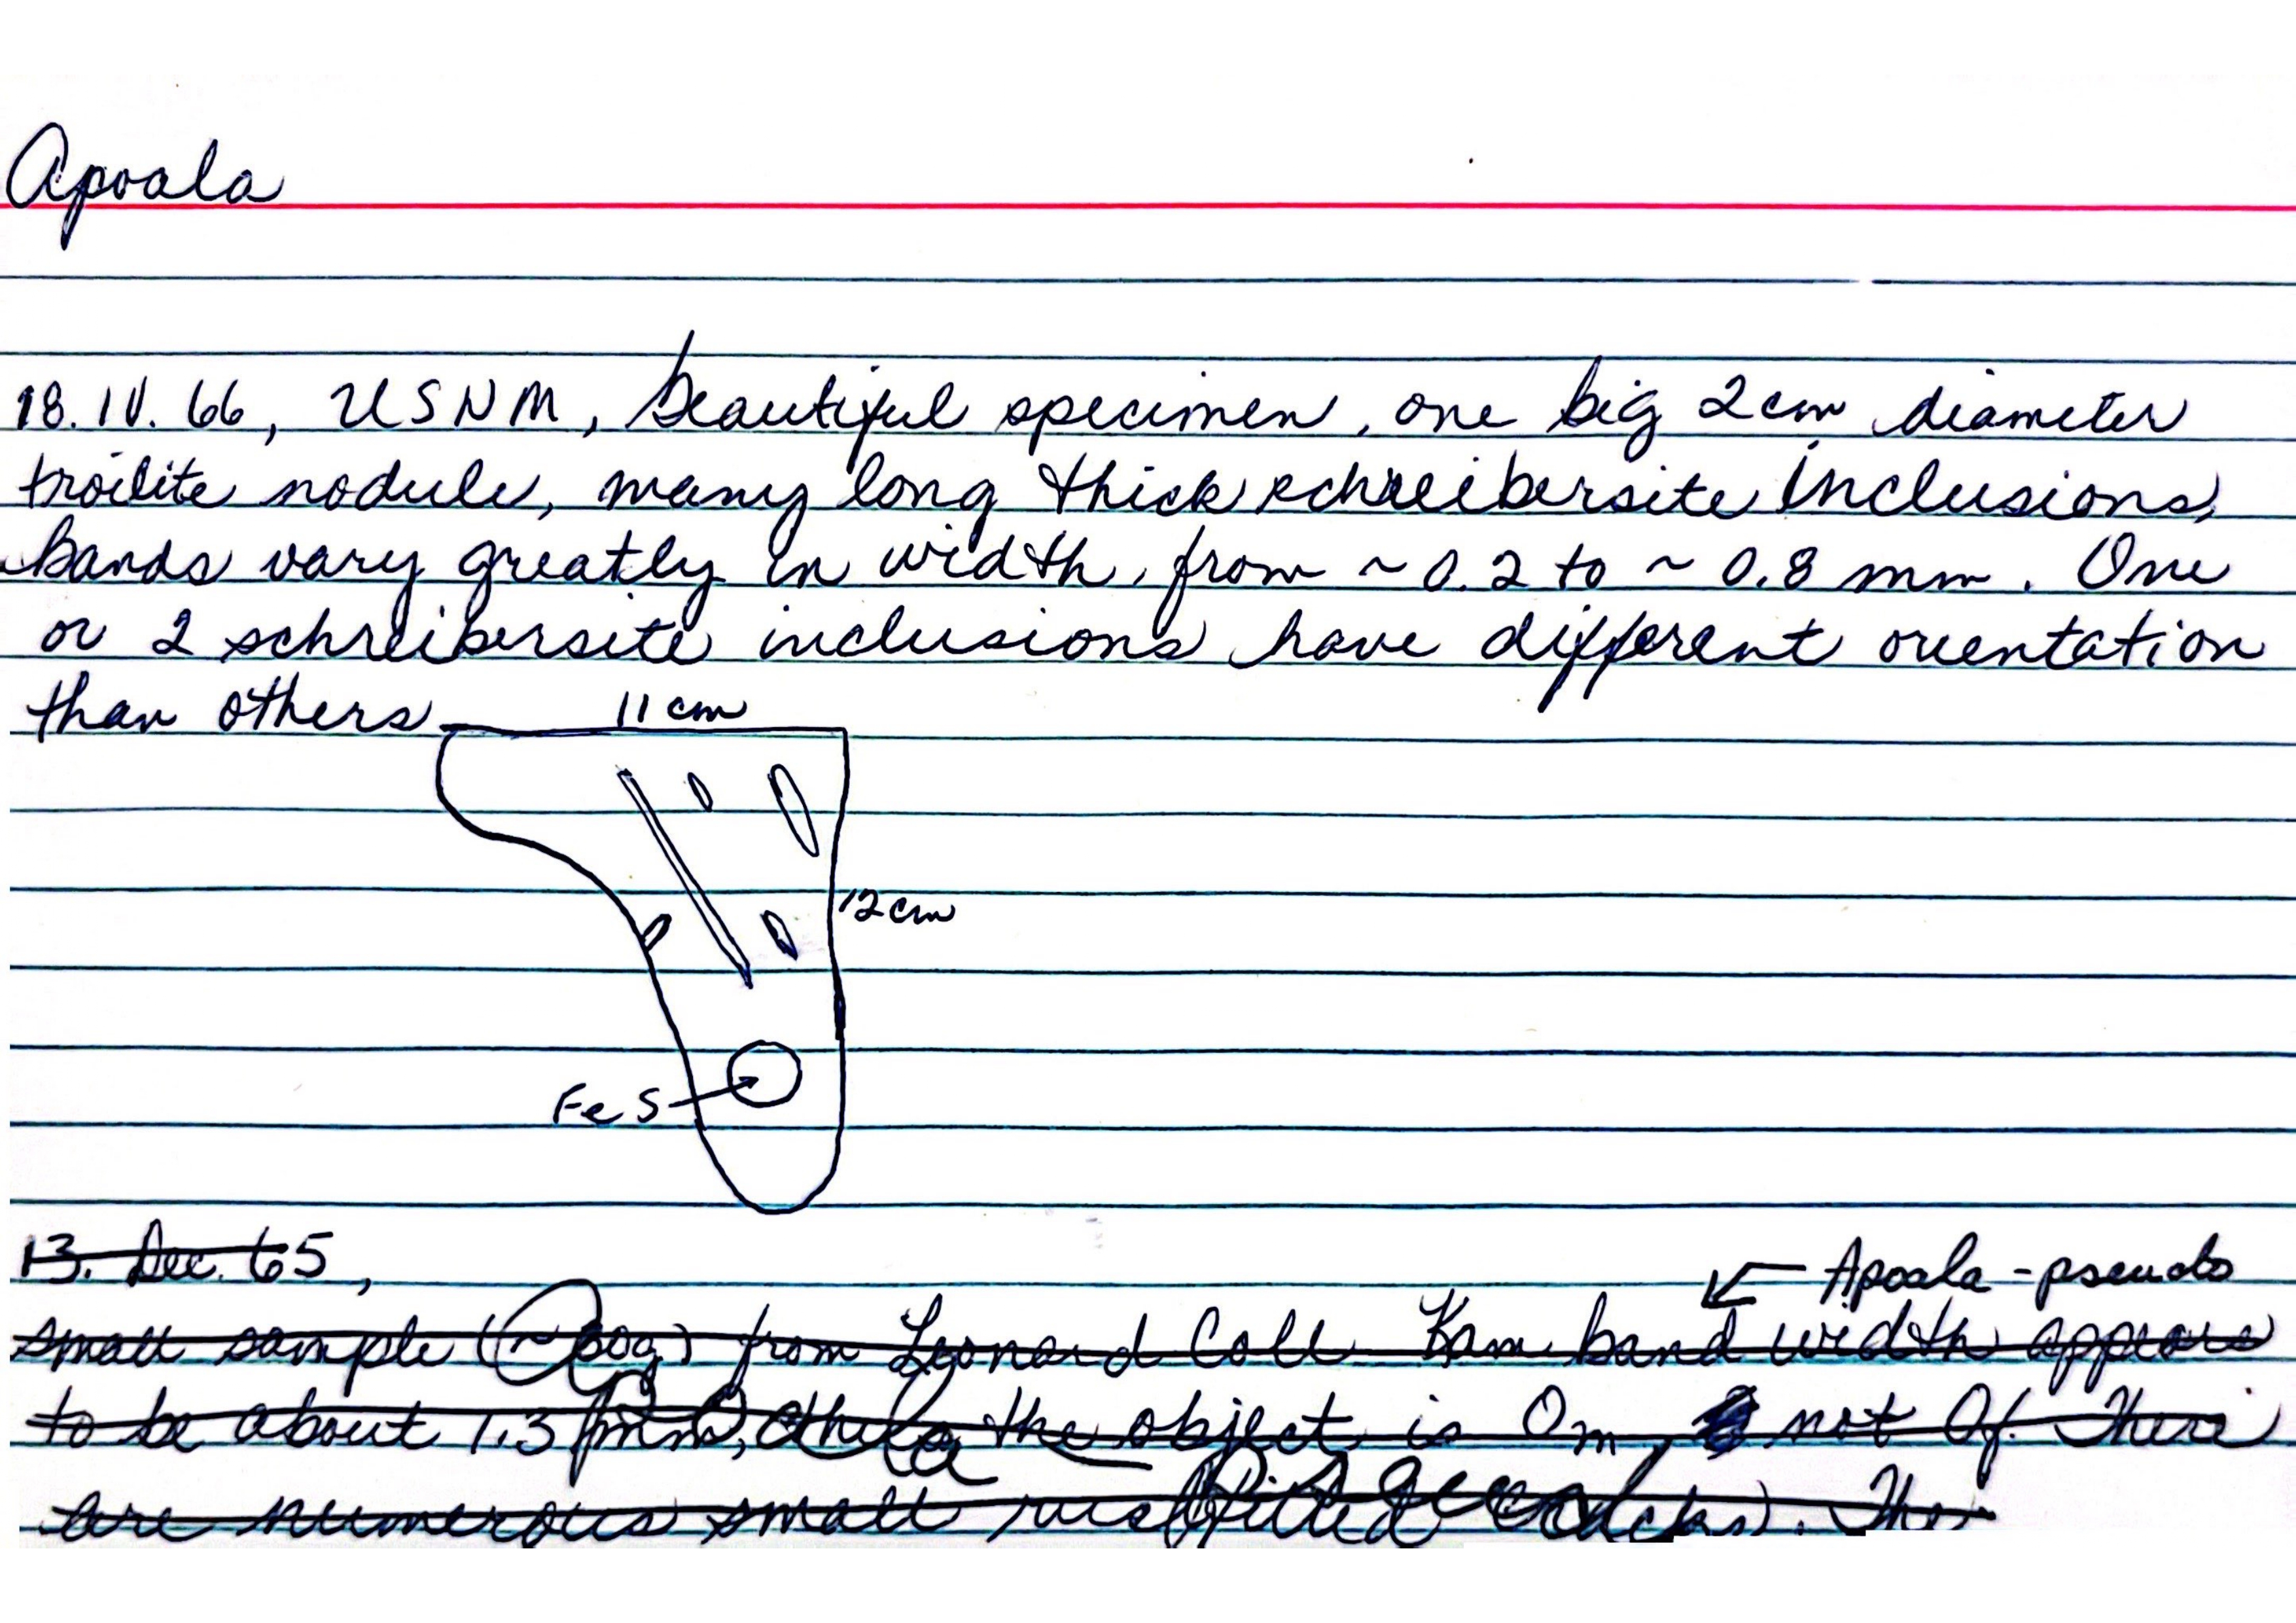 Apoala
18.IV.66, USNM, beautiful specimen, one big 2cm diameter
troilite nodule, many long thick schreibersite inclusions,
bands vary greatly in width, from ~0.2 to ~0.8 mm. One
or 2 schreibersite inclusions have different orientation
than others
11 cm
12 cm
FeS
13. Dec. 65,
← Apoala-pseudo
small sample from Leonard Coll. Kam band width appears
to be about 1.3 mm, the object is Om, not Of. There
are numerous small filled cracks). The